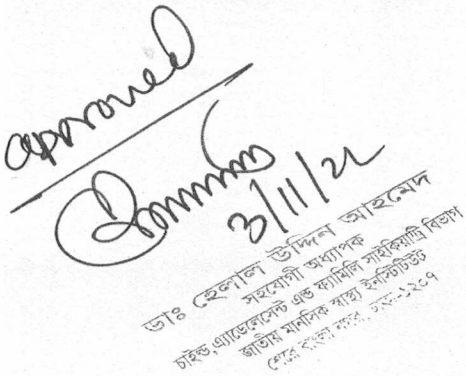 approved
3/11/22
ডাঃ হেলাল উদ্দিন আহমেদ
সহযোগী অধ্যাপক
চাইল্ড, এ্যাডোলেসেন্ট এন্ড ফ্যামিলি সাইকিয়াট্রি বিভাগ
জাতীয় মানসিক স্বাস্থ্য ইনস্টিটিউট
শেরে বাংলা নগর, ঢাকা-১২০৭